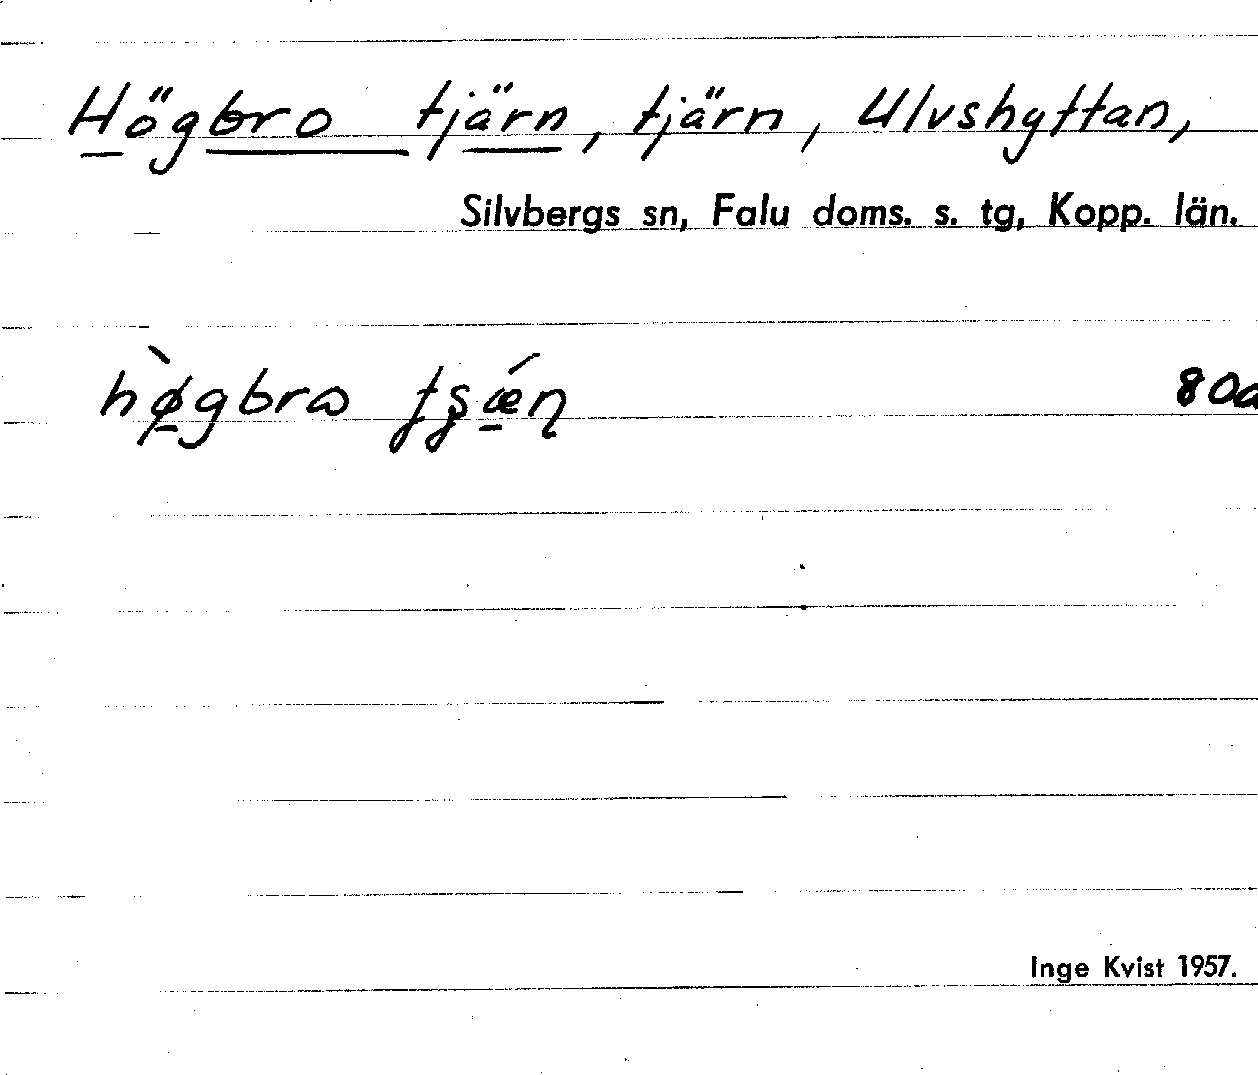 Högbro tjärn, tjärn, Ulvshyttan,
Silvbergs sn, Falu doms. s. tg, Kopp. län.
hø̀gbra 80a
Inge Kvist 1957.